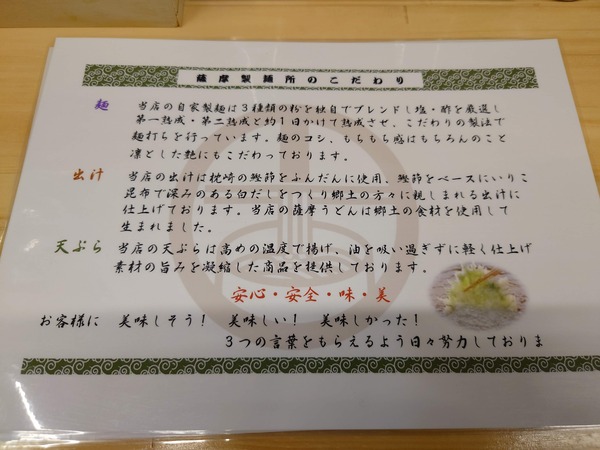 薩摩製麺所のこだわり
麺 当店の自家製麺は3種類の粉を独自でブレンドし塩・酢を厳選し
第一熟成・第二熟成と約1日かけて熟成させ、こだわりの製法で
麺打ちを行っています。麺のコシ、もちもち感はもちろんのこと
凛とした艶にもこだわっております。
出汁 当店の出汁は枕崎の鰹節をふんだんに使用。鰹節をベースにいりこ
昆布で深みのある白だしをつくり郷土の方々に親しまれる出汁に
仕上げております。当店の薩摩うどんは郷土の食材を使用して
生まれました。
天ぷら 当店の天ぷらは高めの温度で揚げ、油を吸い過ぎずに軽く仕上げ
素材の旨みを凝縮した商品を提供しております。
安心・安全・味・美
お客様に 美味しそう! 美味しい! 美味しかった!
3つの言葉をもらえるよう日々努力しておりま